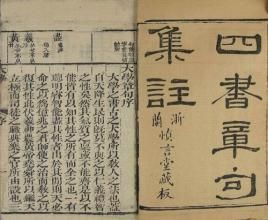 四書章句
集註
浙
蘭慎言堂藏板
大學章句序
大學之書古之大學所以教人之法也蓋
自天降生民則既莫不與之以仁義禮智
之性矣然其氣質之稟或不能齊是以不
能皆有以知其性之所有而全之也一有
聰明睿智能盡其性者出於其間則天必
命之以爲億兆之君師使之治而教之以
復其性此伏羲神農黃帝堯舜所以繼天
立極而司徒之職典樂之官所由設也